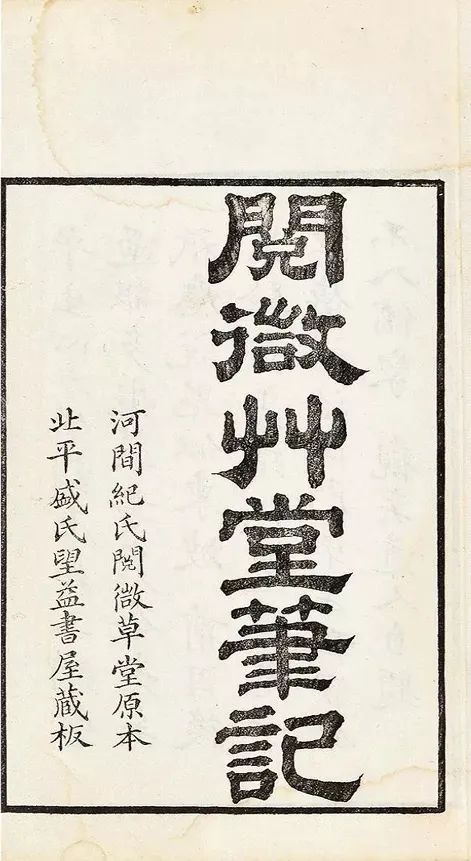 閱微艸堂筆記
河間紀氏閱微草堂原本
北平盛氏望益書屋藏板